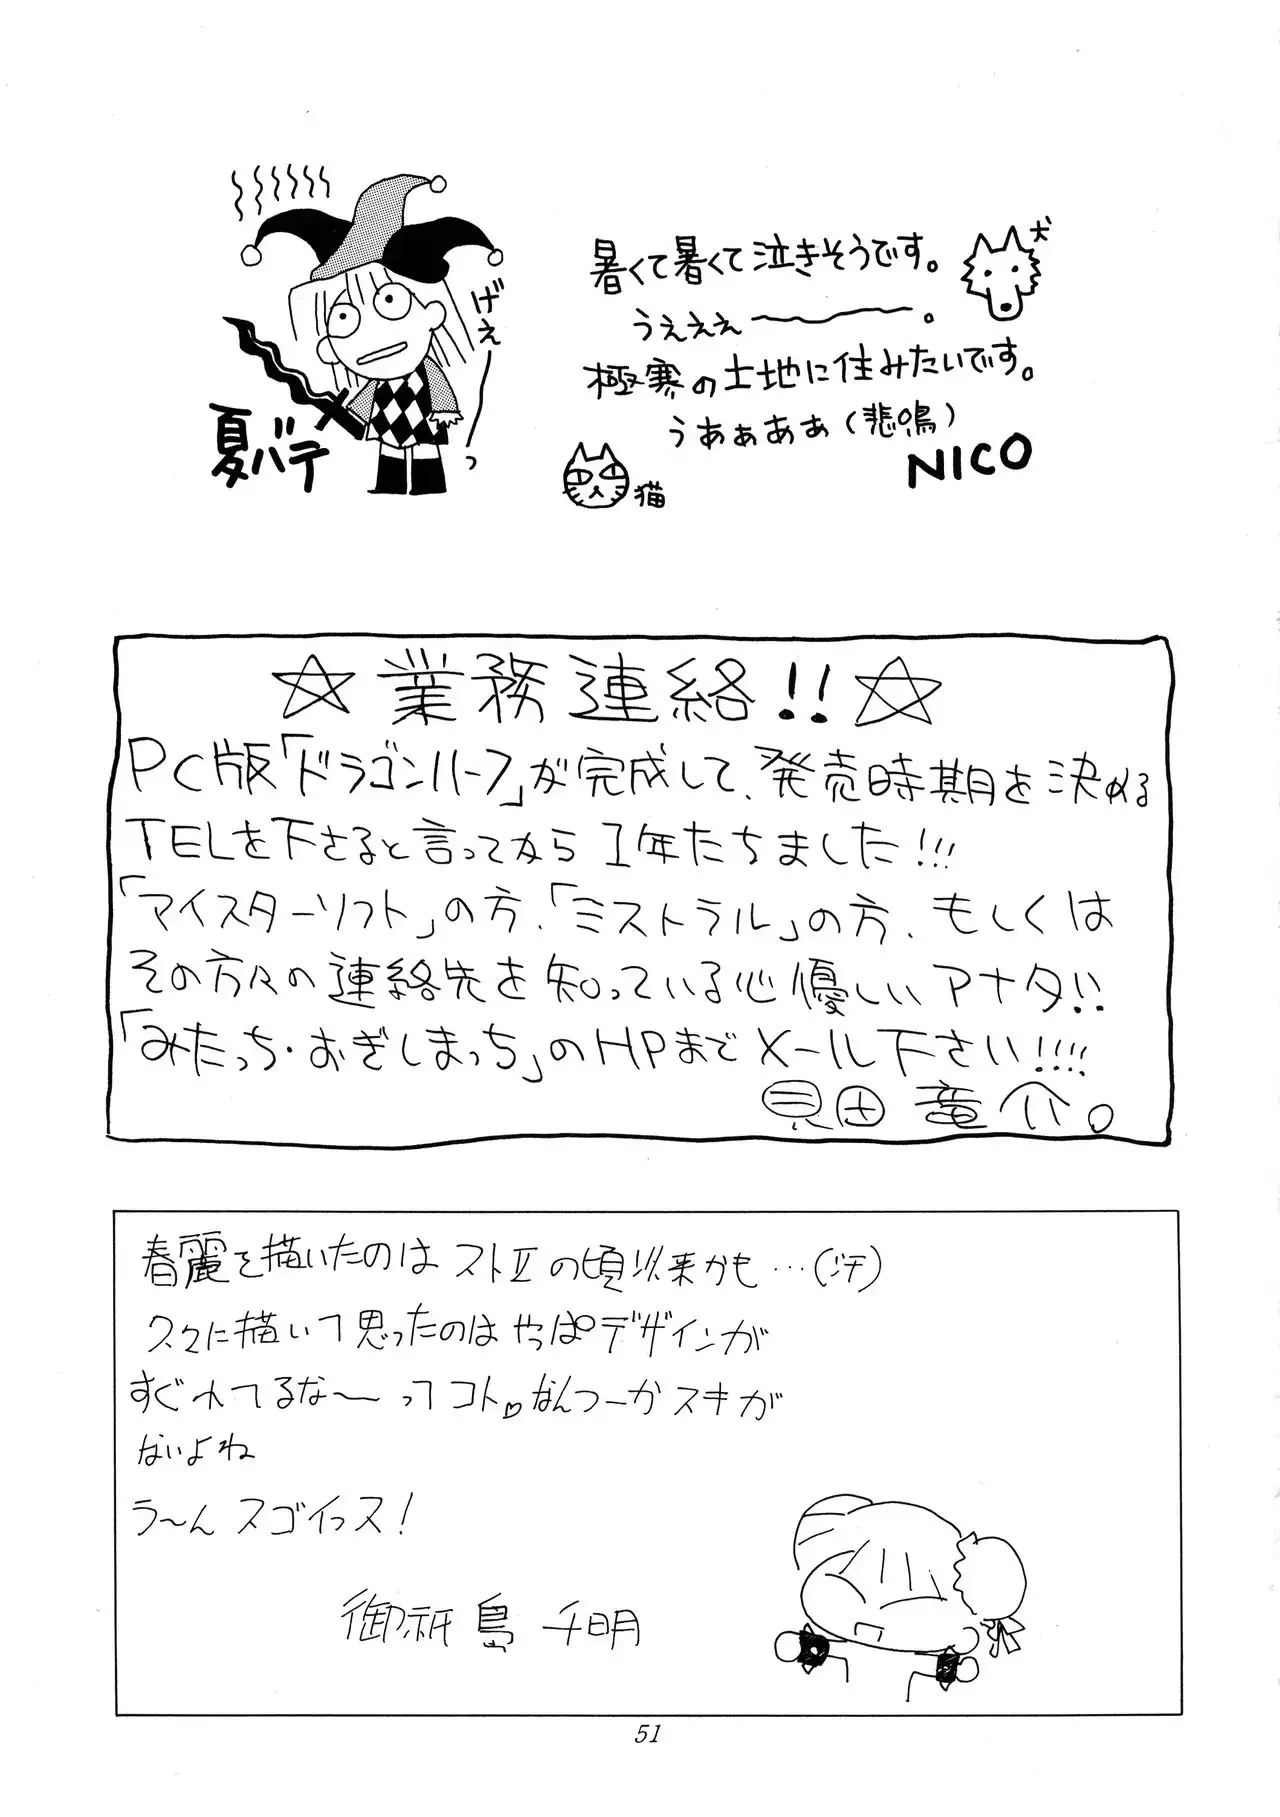 暑くて暑くて泣きそうです。
犬
うぇぇぇ〜。
極寒の土地に住みたいです。
うあぁあぁ(悲鳴)
NICO
猫
げぇーっ
夏バテ
☆業務連絡!!☆
PC版「ドラゴンハーフ」が完成して、発売時期を決める
TELを下さると言ってから1年たちました!!!
「マイスターソフト」の方、「ミストラル」の方、もしくは
その方々の連絡先を知っている心優しいアナタ!!
「みたっち・おぎしまっち」のHPまでメール下さい!!!!
見田竜介。
春麗を描いたのはストⅡの頃以来かも…(汗)
久々に描いて思ったのはやっぱデザインが
すぐれてるな〜ってコト。なんつーかスキが
ないよね
う〜んスゴイっス!
御祇島千明
51